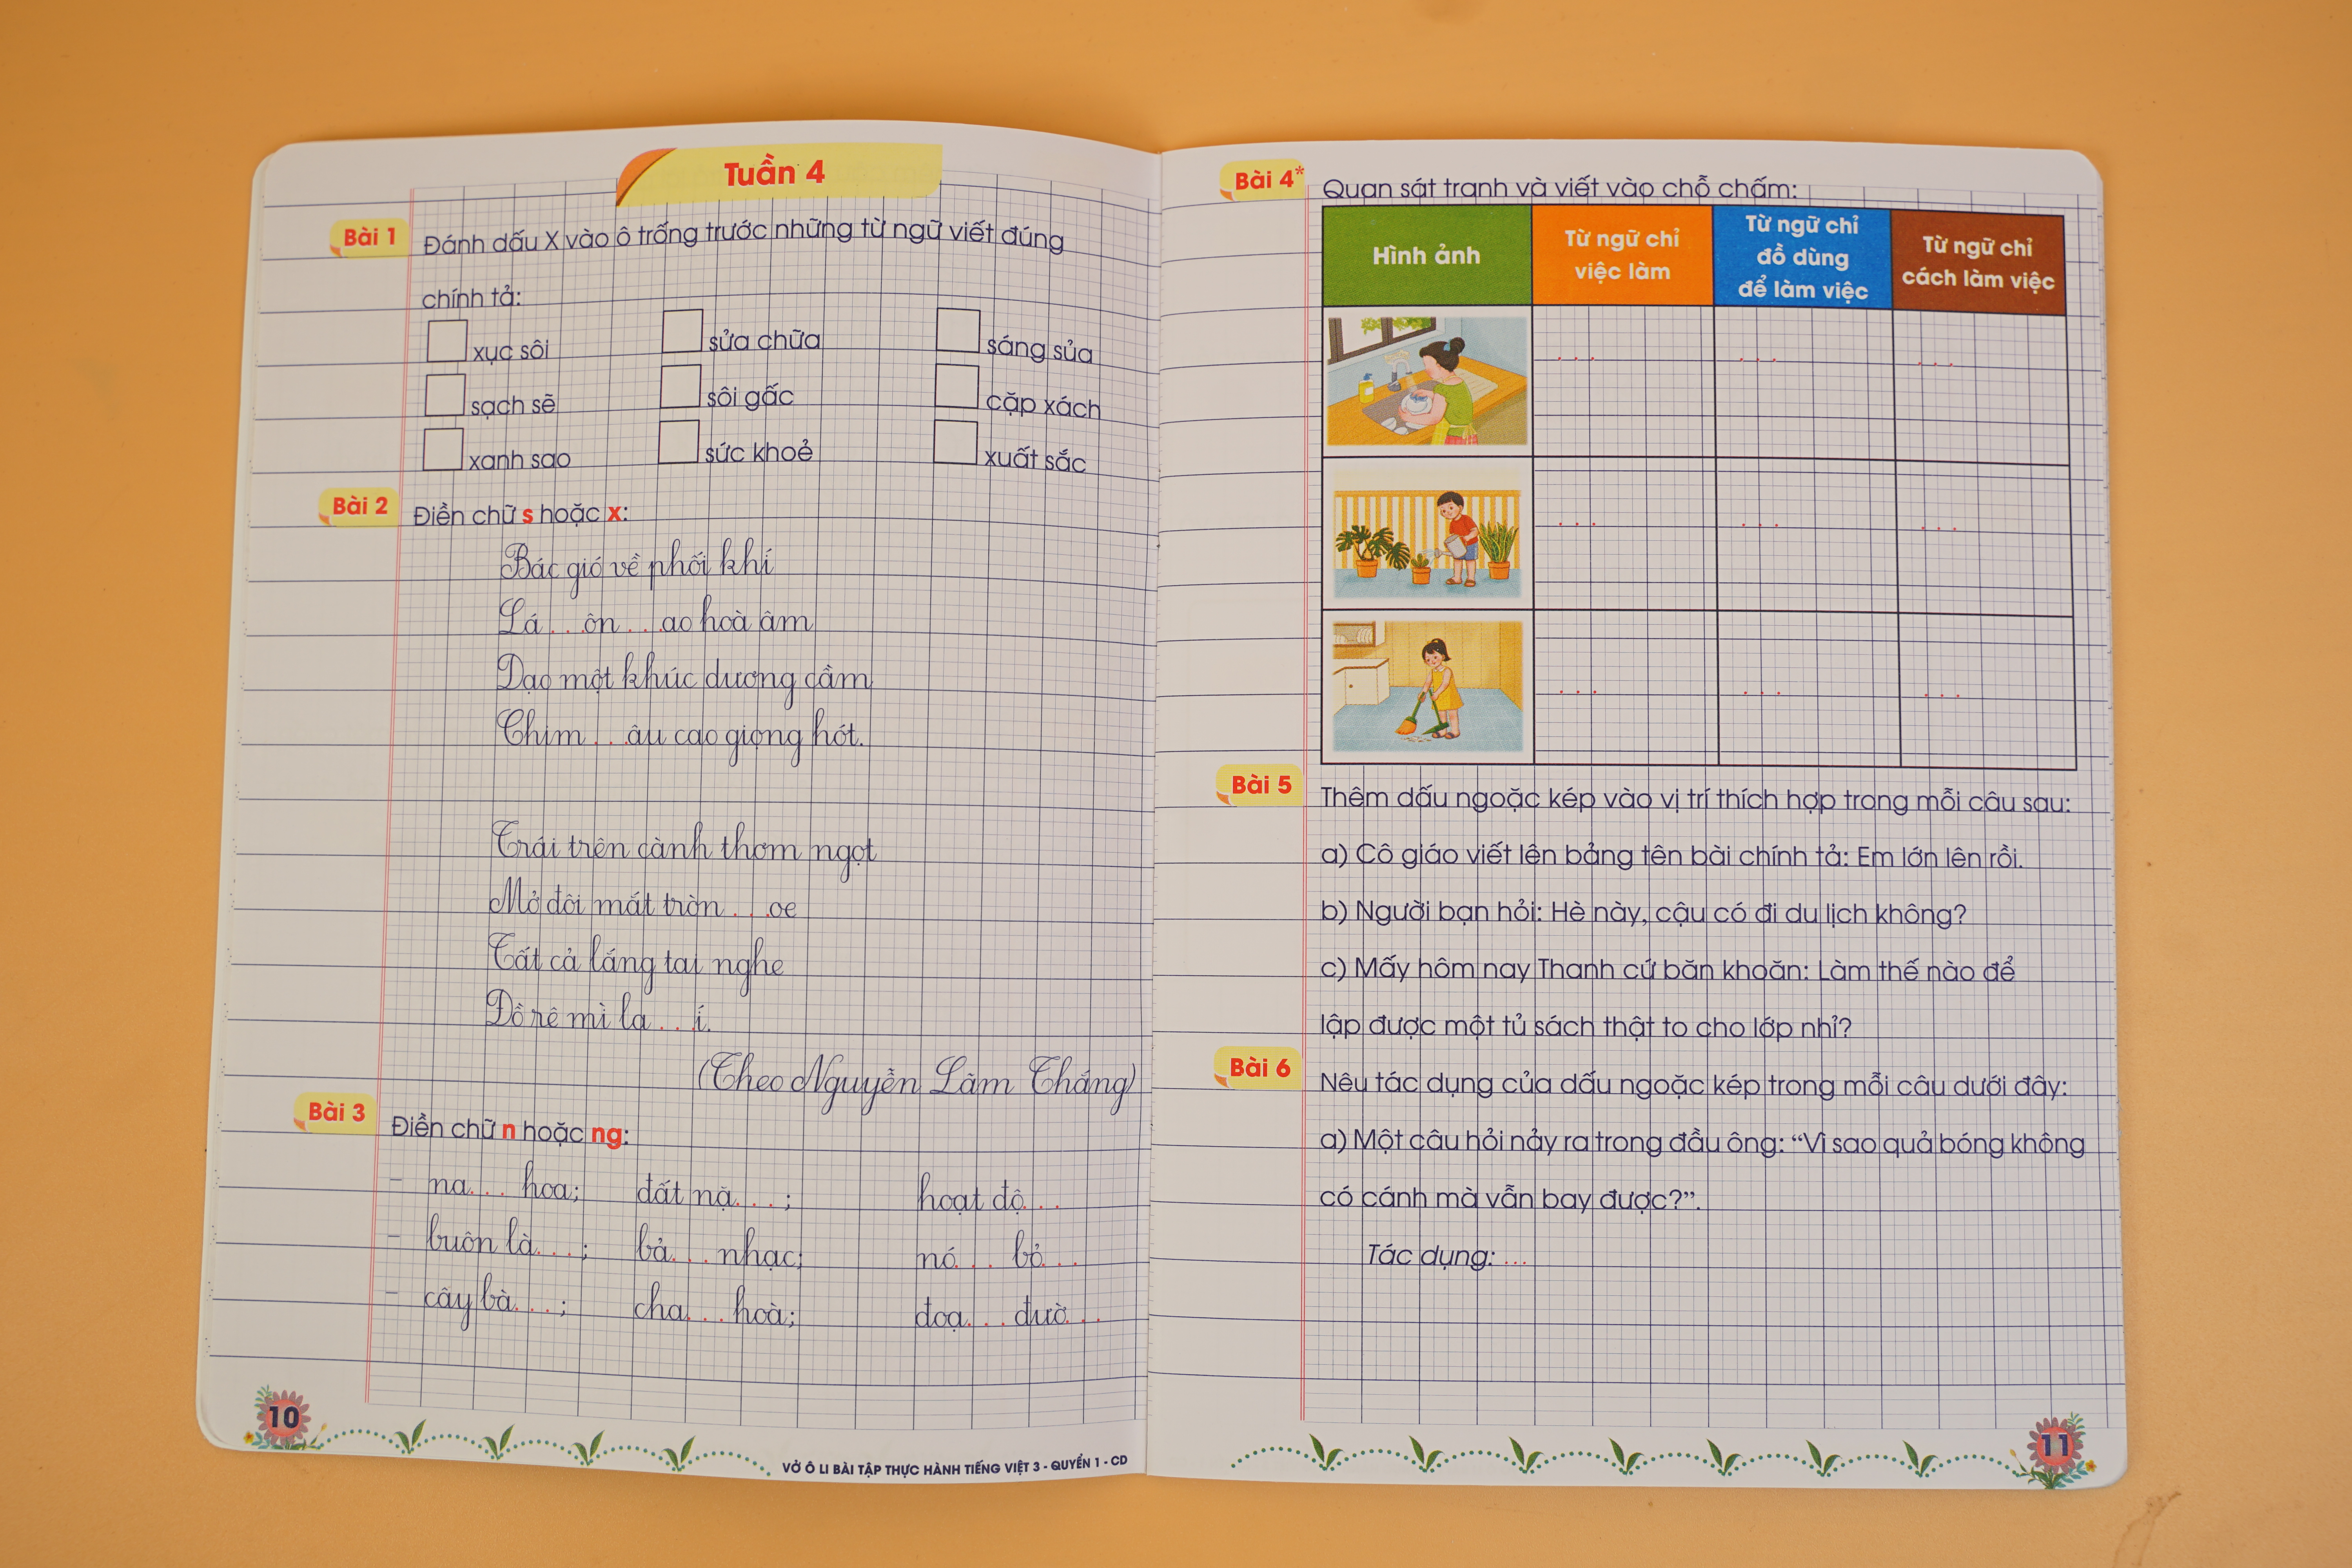 Tuần 4
Bài 1 Đánh dấu X vào ô trống trước những từ ngữ viết đúng
chính tả:
xục sôi sửa chữa sáng sủa
sạch sẽ sôi gấc cặp xách
xanh sao sức khoẻ xuất sắc
Bài 2 Điền chữ s hoặc x:
Bác gió về phối khí
Lá ...ôn ...ao hoà âm
Dạo một khúc dương cầm
Chim ...âu cao giọng hót.
Trái trên cành thơm ngọt
Mở đôi mắt tròn ...oe
Tất cả lắng tai nghe
Đồ rê mì la ...í.
(Theo Nguyễn Lãm Thắng)
Bài 3 Điền chữ n hoặc ng:
- na... hoa; đất nặ...; hoạt độ...
- buôn là...; bả... nhạc; nó... bỏ...
- cây bà...; cha... hoà; đoạ... đườ...
10
VỞ Ô LI BÀI TẬP THỰC HÀNH TIẾNG VIỆT 3 - QUYỂN 1 - CD
Bài 4* Quan sát tranh và viết vào chỗ chấm:
Hình ảnh
Từ ngữ chỉ
việc làm
Từ ngữ chỉ
đồ dùng
để làm việc
Từ ngữ chỉ
cách làm việc
... ... ...
... ... ...
... ... ...
Bài 5 Thêm dấu ngoặc kép vào vị trí thích hợp trong mỗi câu sau:
a) Cô giáo viết lên bảng tên bài chính tả: Em lớn lên rồi.
b) Người bạn hỏi: Hè này, cậu có đi du lịch không?
c) Mấy hôm nay Thanh cứ băn khoăn: Làm thế nào để
lập được một tủ sách thật to cho lớp nhỉ?
Bài 6 Nêu tác dụng của dấu ngoặc kép trong mỗi câu dưới đây:
a) Một câu hỏi nảy ra trong đầu ông: “Vì sao quả bóng không
có cánh mà vẫn bay được?”.
Tác dụng: ...
11